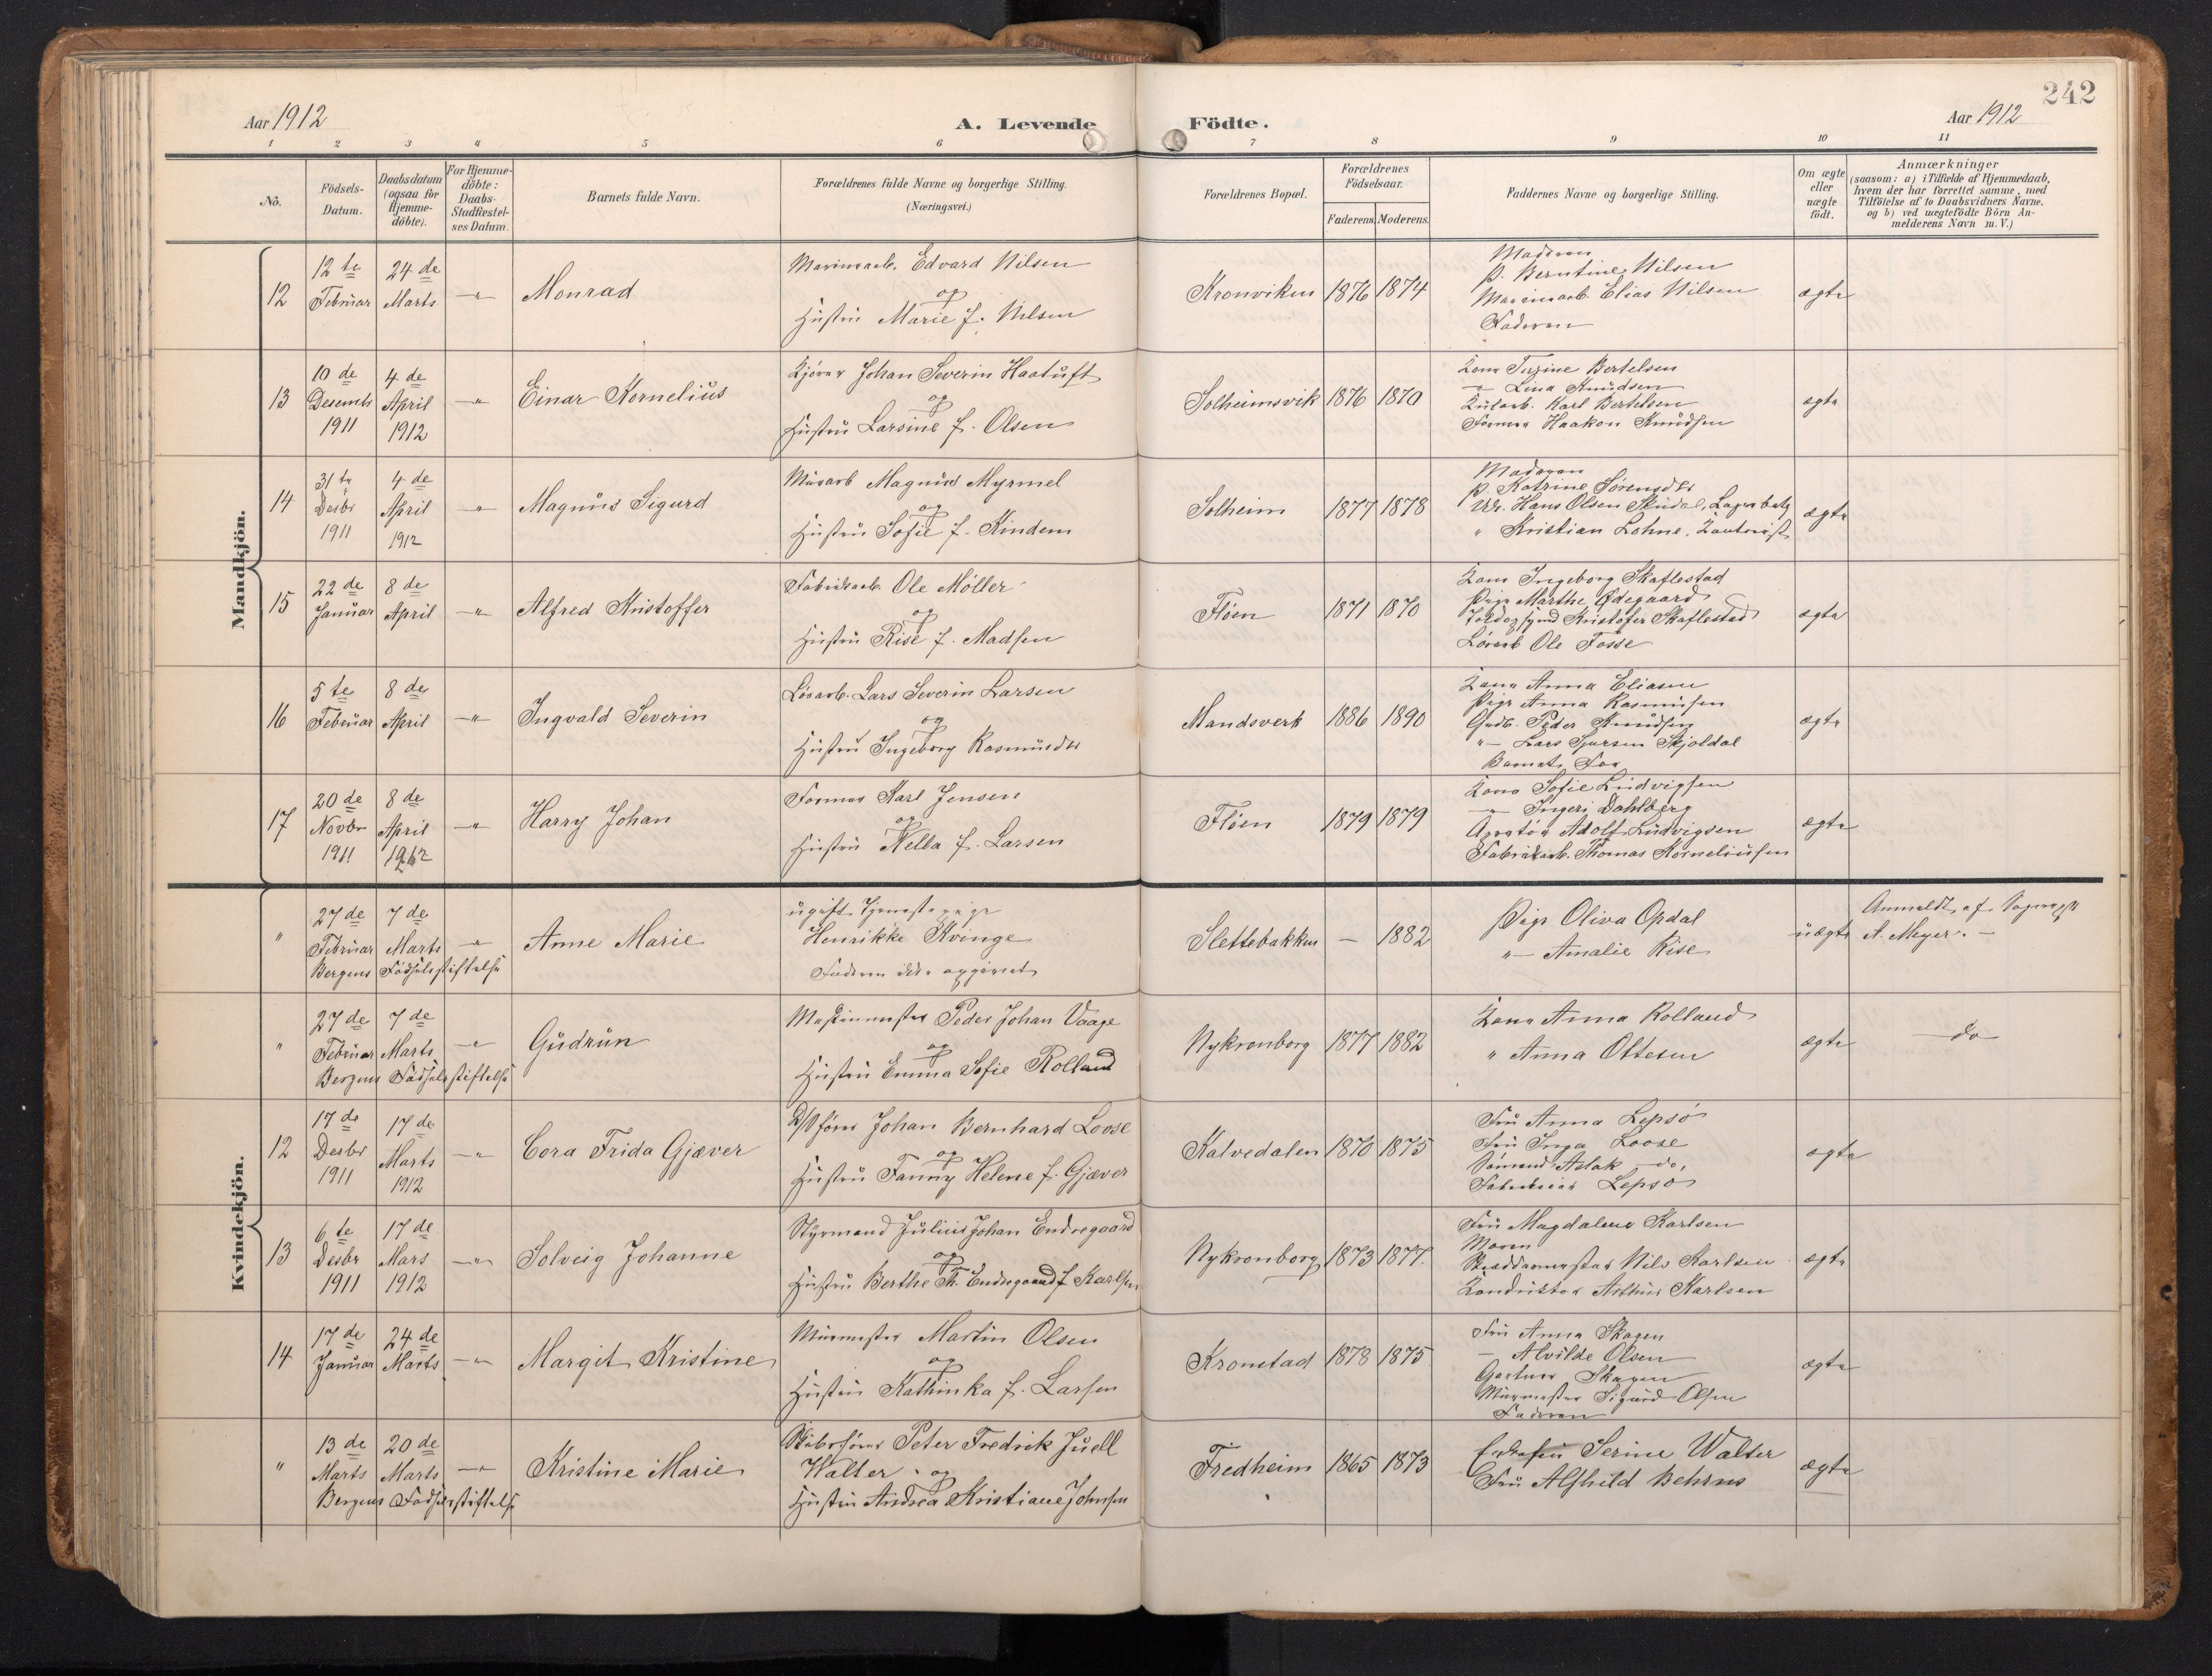 242
Aar 1912
A. Levende Födte.
Aar 1912
1 2 3 4 5 6 7 8 9 10 11
No.
Födsels-Datum.
Daabsdatum (ogsaa for Hjemme-döbte).
For Hjemme-döbte: Daabs-Stadfæstel-ses Datum.
Barnets fulde Navn.
Forældrenes fulde Navne og borgerlige Stilling.
(Næringsvei.)
Forældrenes Bopæl.
Forældrenes Födselsaar.
Faderens. Moderens.
Faddernes Navne og borgerlige Stilling.
Om ægte eller uægte födt.
Anmærkninger
(saasom: a) i Tilfælde af Hjemmedaab, hvem der har forrettet samme, med Tilföielse af to Daabsvidners Navne. og b) ved uægtefödte Börn An-melderens Navn m. V.)
Mandkjön.
12
12te Februar
24de Marts
Monrad
Edvard Nilsen
og
Hustru Marie f. Nilsen
Kronviken 1876 1874
Moderen
P. Berntine Nilsen
Elias Nilsen
Faderen
ægte
13
10de Desemb 1911
4de April 1912
Einar Kornelius
Kjører Johan Severin Haatuft
og
Hustru Larsine f. Olsen
Solheimsvik 1876 1870
Kone Bertelsen
" Lina Knudsen
Karl Bertelsen
Former Haakon Knudsen
ægte
14
31te Desbr 1911
4de April 1912
Magnus Sigurd
Murarb Magnus Myrmel
og
Hustru Sofie f. Kindem
Solheim 1877 1878
Moderen
P. Katrine Sørensdtr
Hans Olsen
" Kristian Lohne,
ægte
15
22de Januar
8de April
Alfred Kristoffer
Fabrikarb. Ole Möller
og
Hustru Rise f. Madsen
Fløen 1871 1870
Kone Ingeborg Skaflestad
Pige Marthe Ødegaard
Kristofer Skaflestad
Løsarb Ole Fosse
ægte
16
5te Februar
8de April
Ingvald Severin
Løsarb. Lars Severin Larsen
og
Hustru Ingeborg Rasmusdtr
Mandsverk 1886 1890
Kone Anna Eliasen
Pige Anna Rasmusen
Gudb. Peder Knudsen
"— Lars Skjoldal
Barnets Far
ægte
17
20de Novbr 1911
8de April 1912
Harry Johan
Former Karl Jensen
og
Hustru Nella f. Larsen
Fløen 1879 1879
Kone Sofie Ludvigsen
—"— Dahlberg
Adolf Ludvigsen
Fabrikarb. Thomas Korneliusen
ægte
Kvindekjön.
"
27de Februar
7de Marts
Bergens Födselsstiftelse
Anne Marie
ugift Tjenestepige
Henrikke Kvinge
Faderen ikke opgivet
Slettebakken — 1882
Pige Oliva Opdal
"— Amalie Rise
uægte
Anmeldt af
A. Meyer.—
"
27de Februar
7de Marts
Bergens Födselsstiftelse
Gudrun
Maskinmester Peder Johan Vaage
og
Hustru Emma Sofie Rolland
Nykronborg 1877 1882
Kone Anna Rolland
" Anna Ottesen
ægte
do
12
17de Desbr 1911
17de Marts 1912
Cora Frida Gjæver
D/S fører Johan Bernhard Loose
og
Hustru Fanny Helene f. Gjæver
Kalvedalen 1870 1875
Fru Anna Lepsö
Fru Inga Loose
Sömand Aslak do.
Lepsö
ægte
13
6te Desbr 1911
17de Mars 1912
Solveig Johanne
Styrmand Julius Johan Endregaard
og
Hustru Berthe Th. Endregaard f. Karlsen
Nykronborg 1873 1877.
Fru Magdalene Karlsen
Moren
Skræddermester Nils Karlsen
Konduktør Arthur Karlsen
ægte
14
17de Januar
24de Marts
Margit Kristine
Murmester Martin Olsen
og
Hustru Kathinka f. Larsen
Kronstad 1878 1875
Fru Anna Skagen
— Alvilde Olsen
Gartner Skagen
Murmester Sigurd Olsen
Faderen
ægte
"
13de Marts
20de Marts
Bergens Födselsstiftelse
Kristine Marie
Skibsfører Peter Fredrik Juell
Walter. og
Hustru Andrea Kristiane Johnsen
Fredheim 1865 1873
Serine Walter
Fru Alfhild Behrns
ægte